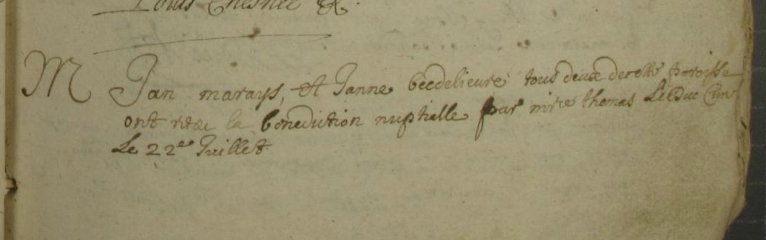 Louis Chesnel &.
M Jan marays, Et Janne becdelieure tous deux de cette paroisse
ont receu la benediction nuptialle par mire thomas Le Duc
Le 22e Juillet